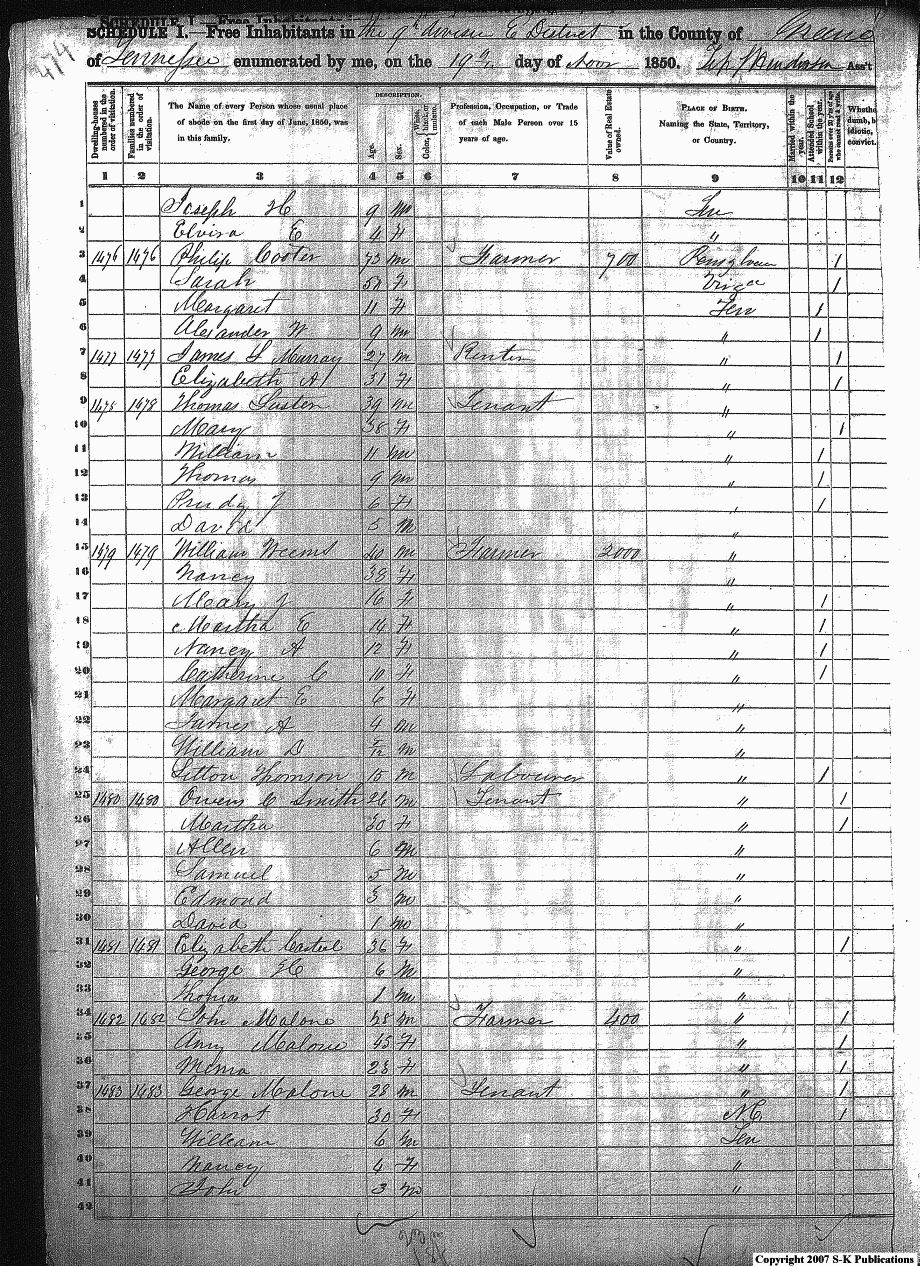 474
SCHEDULE I.—Free Inhabitants in the 9th division E District in the County of Greene
of Tennessee enumerated by me, on the 19th day of Novr 1850. Ass't
Dwelling-houses numbered in the order of visitation. Families numbered in the order of visitation. The Name of every Person whose usual place of abode on the first day of June, 1850, was in this family. DESCRIPTION. Age. Sex. Color, White, black, or mulatto. Profession, Occupation, or Trade of each Male Person over 15 years of age. Value of Real Estate owned. PLACE OF BIRTH. Naming the State, Territory, or Country. Married within the year. Attended School within the year. Persons over 20 y'rs of age who cannot read & write. Whethe dumb, b idiotic, convict.
1 2 3 4 5 6 7 8 9 10 11 12
1 Joseph H 9 m Ten
2 Elvira E 4 F "
3 1476 1476 Philip Cooter 73 m Farmer 700 /
4 Sarah F Virga /
5 Margaret 11 F Ten /
6 Alexander W 9 m " /
7 1477 1477 James L Murray 27 m Renter " /
8 Elizabeth A 31 F " /
9 1478 1478 Thomas Luster 39 m Tenant "
10 Mary 38 F " /
11 William 11 m " /
12 Thomas 9 m " /
13 Prudy J 6 F " /
14 David 5 m "
15 1479 1479 William Weems 40 m Farmer 2000 "
16 Nancy 38 F "
17 Mary J 16 F " /
18 Martha E 14 F " /
19 Nancy A 12 F " /
20 Catherine C 10 F " /
21 Margaret E 6 F "
22 James A 4 m "
23 William D m "
24 Litton Thomson 15 m Labourer " /
25 1480 1480 Owens C Smith 26 m Tenant " /
26 Martha 30 F " /
27 Allen 6 m "
28 Samuel 5 m "
29 Edmond 3 m "
30 David 1 m "
31 1481 1481 Elizabeth Casteel 36 F " /
32 George H 6 m "
33 Thomas 1 m "
34 1482 1482 John Malone 28 m Farmer 400 " /
35 Ann Malone 45 F " /
36 23 F " /
37 1483 1483 George Malone 28 m Tenant " /
38 Harrot 30 F NC /
39 William 6 m Ten
40 Nancy 4 F "
41 John 3 m "
42
Copyright 2007 S-K Publications